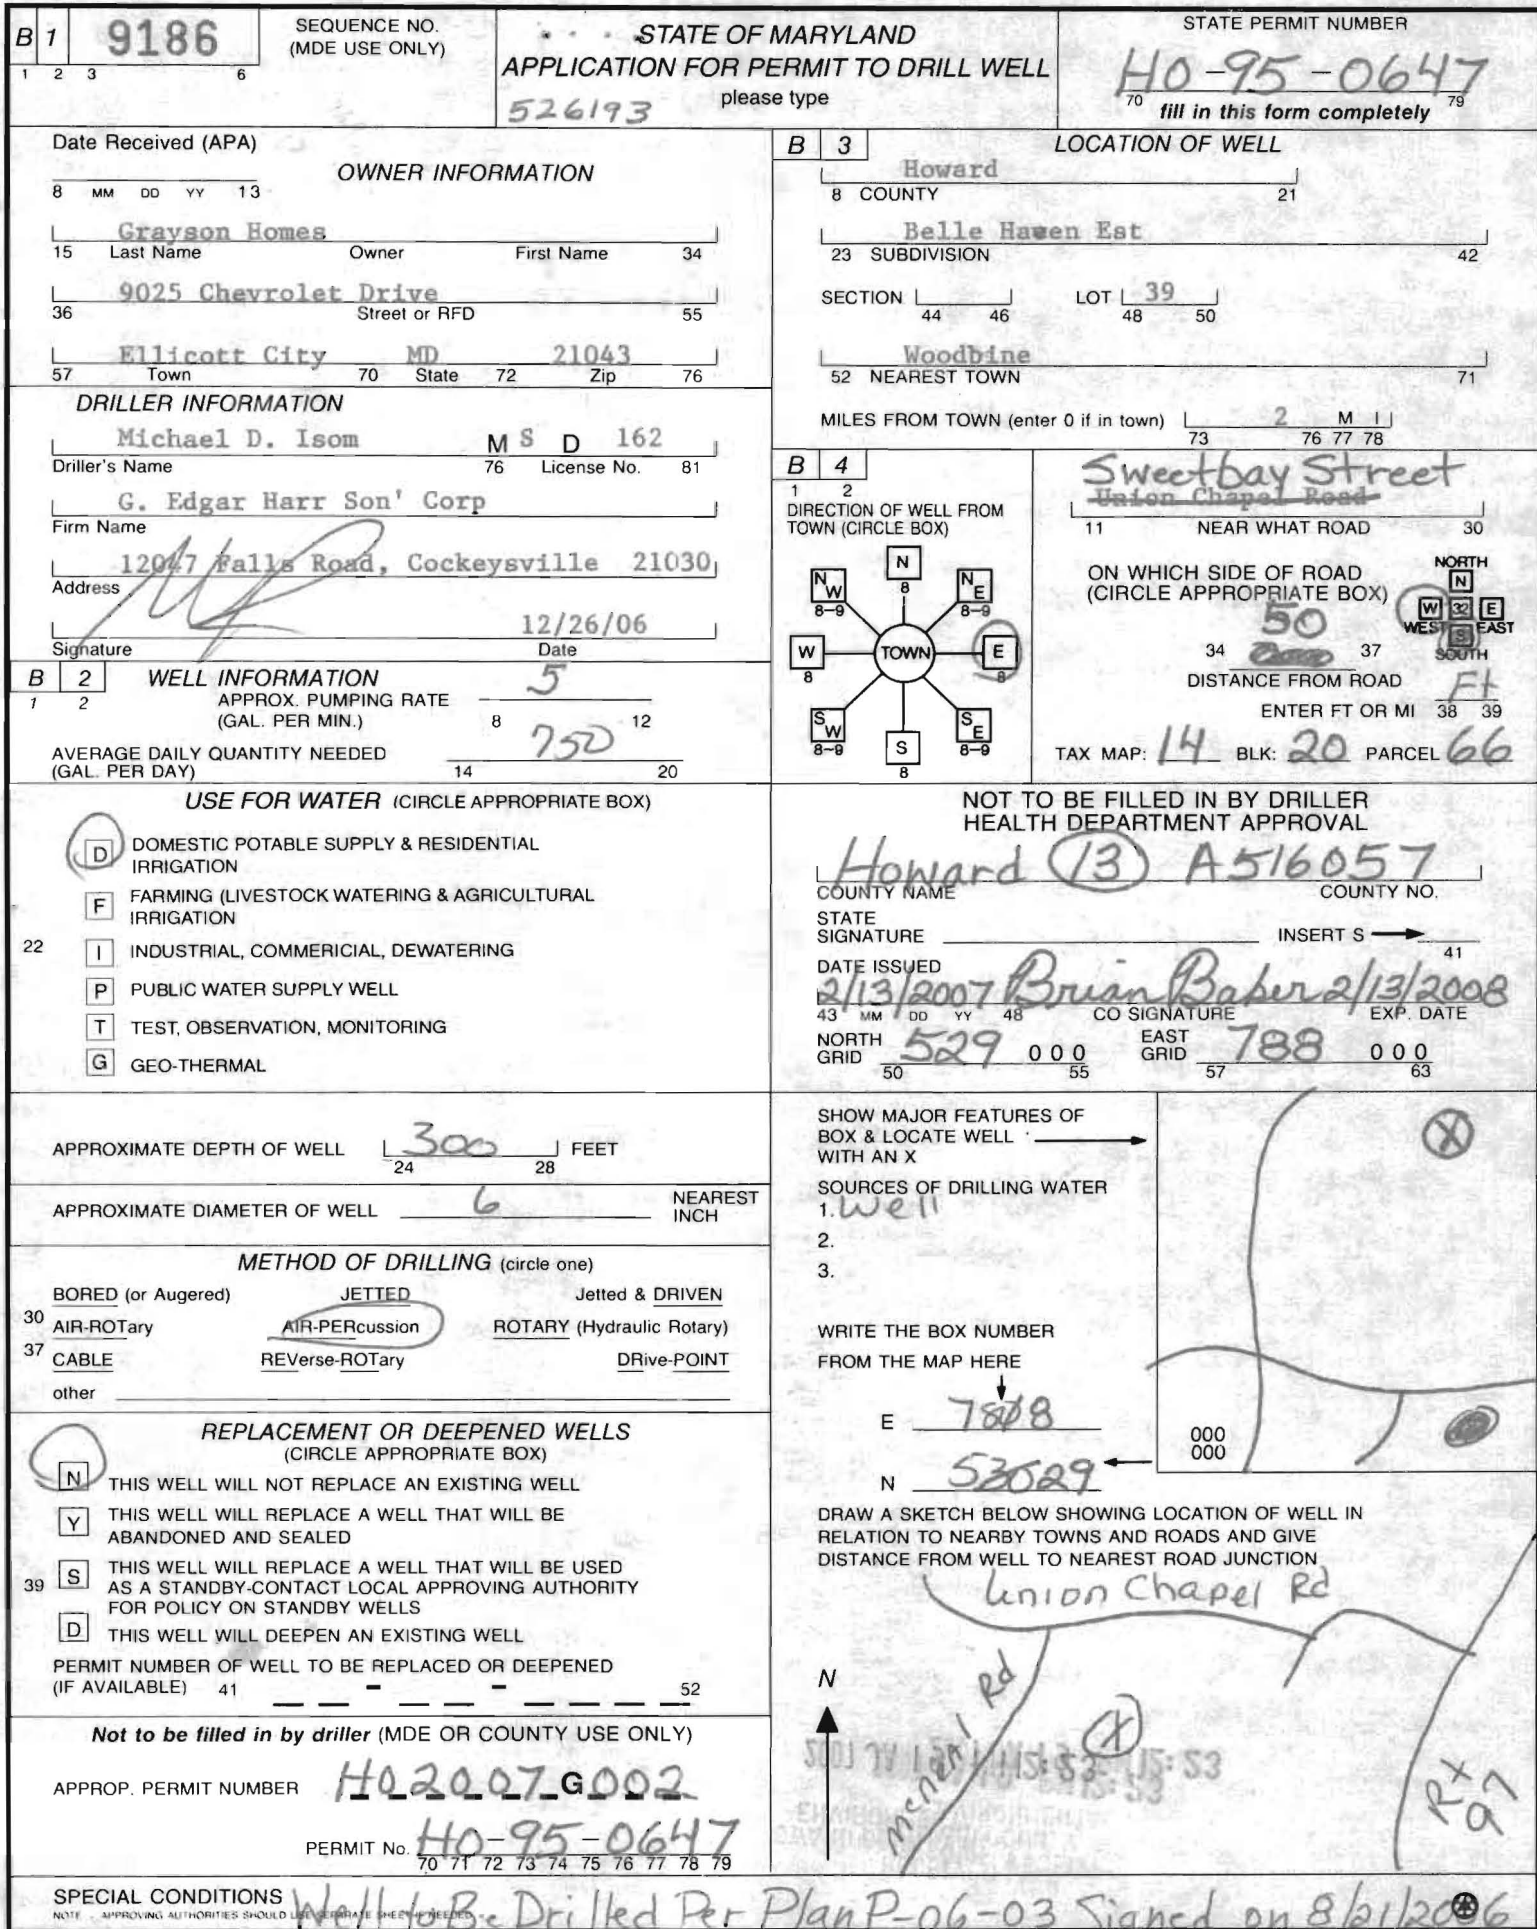 B 1 9186 SEQUENCE NO. (MDE USE ONLY)
1 2 3 6
STATE OF MARYLAND
APPLICATION FOR PERMIT TO DRILL WELL
please type
526193
STATE PERMIT NUMBER
HO-95-0647
70 fill in this form completely 79
Date Received (APA)
8 MM DD YY 13
OWNER INFORMATION
Grayson Homes
15 Last Name Owner First Name 34
9025 Chevrolet Drive
36 Street or RFD 55
Ellicott City MD 21043
57 Town 70 State 72 Zip 76
DRILLER INFORMATION
Michael D. Isom M S D 162
Driller's Name 76 License No. 81
G. Edgar Harr Son' Corp
Firm Name
12047 Falls Road, Cockeysville 21030
Address
12/26/06
Signature Date
B 2 WELL INFORMATION
1 2
APPROX. PUMPING RATE 5
(GAL. PER MIN.) 8 12
AVERAGE DAILY QUANTITY NEEDED 750
(GAL. PER DAY) 14 20
USE FOR WATER (CIRCLE APPROPRIATE BOX)
D DOMESTIC POTABLE SUPPLY & RESIDENTIAL
IRRIGATION
F FARMING (LIVESTOCK WATERING & AGRICULTURAL
IRRIGATION
22 I INDUSTRIAL, COMMERICIAL, DEWATERING
P PUBLIC WATER SUPPLY WELL
T TEST, OBSERVATION, MONITORING
G GEO-THERMAL
APPROXIMATE DEPTH OF WELL 300 FEET
24 28
APPROXIMATE DIAMETER OF WELL 6 NEAREST INCH
METHOD OF DRILLING (circle one)
BORED (or Augered) JETTED Jetted & DRIVEN
30 AIR-ROTary AIR-PERcussion ROTARY (Hydraulic Rotary)
37 CABLE REVerse-ROTary DRive-POINT
other
REPLACEMENT OR DEEPENED WELLS
(CIRCLE APPROPRIATE BOX)
N THIS WELL WILL NOT REPLACE AN EXISTING WELL
Y THIS WELL WILL REPLACE A WELL THAT WILL BE
ABANDONED AND SEALED
39 S THIS WELL WILL REPLACE A WELL THAT WILL BE USED
AS A STANDBY-CONTACT LOCAL APPROVING AUTHORITY
FOR POLICY ON STANDBY WELLS
D THIS WELL WILL DEEPEN AN EXISTING WELL
PERMIT NUMBER OF WELL TO BE REPLACED OR DEEPENED
(IF AVAILABLE) 41 - - 52
Not to be filled in by driller (MDE OR COUNTY USE ONLY)
APPROP. PERMIT NUMBER HO2007G002
PERMIT No. HO-95-0647
70 71 72 73 74 75 76 77 78 79
B 3 LOCATION OF WELL
Howard
8 COUNTY 21
Belle Haven Est
23 SUBDIVISION 42
SECTION LOT 39
44 46 48 50
Woodbine
52 NEAREST TOWN 71
MILES FROM TOWN (enter 0 if in town) 2 M I
73 76 77 78
B 4
1 2
DIRECTION OF WELL FROM
TOWN (CIRCLE BOX)
N 8
NW 8-9 NE 8-9
W 8 TOWN E 8
SW 8-9 SE 8-9
S 8
Sweetbay Street
Union Chapel Road
11 NEAR WHAT ROAD 30
ON WHICH SIDE OF ROAD
(CIRCLE APPROPRIATE BOX)
NORTH
N
W 32 E
WEST S EAST
SOUTH
50
34 37
DISTANCE FROM ROAD
Ft
ENTER FT OR MI 38 39
TAX MAP: 14 BLK: 20 PARCEL 66
NOT TO BE FILLED IN BY DRILLER
HEALTH DEPARTMENT APPROVAL
Howard 13 A516057
COUNTY NAME COUNTY NO.
STATE
SIGNATURE INSERT S
41
DATE ISSUED
2/13/2007 Brian Baker 2/13/2008
43 MM DD YY 48 CO SIGNATURE EXP. DATE
NORTH GRID 529 000 EAST GRID 788 000
50 55 57 63
SHOW MAJOR FEATURES OF
BOX & LOCATE WELL
WITH AN X
X
SOURCES OF DRILLING WATER
1. Well
2.
3.
WRITE THE BOX NUMBER
FROM THE MAP HERE
E
N
000
000
DRAW A SKETCH BELOW SHOWING LOCATION OF WELL IN
RELATION TO NEARBY TOWNS AND ROADS AND GIVE
DISTANCE FROM WELL TO NEAREST ROAD JUNCTION
Union Chapel Rd
N
Rd
X
Rt
97
SPECIAL CONDITIONS Well to Be Drilled Per Plan P-06-03 Signed on 8/21/2006
NOTE - APPROVING AUTHORITIES SHOULD USE SEPARATE SHEET IF NEEDED